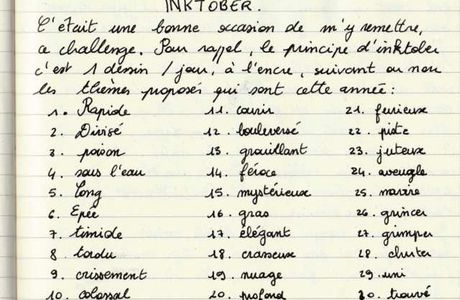 INKTOBER.
C'était une bonne occasion de m'y remettre,
a challenge. Pour rappel, le principe d'inktober
c'est 1 dessin / jour, à l'encre, suivant ou non
les thèmes proposés qui sont cette année :
1. Rapide 11. courir 21. furieux
2. Divisé 12. bouleversé 22. piste
3. poison 13. grouillant 23. juteux
4. sous l'eau 14. féroce 24. aveugle
5. Long 15. mystérieux 25. navire
6. Epée 16. gras 26. grincer
7. timide 17. élégant 27. grimper
8 tordu 18. crasseux 28. chuter
9. crissement 19. nuage 29. uni
10. colossal 20. profond 30. trouvé